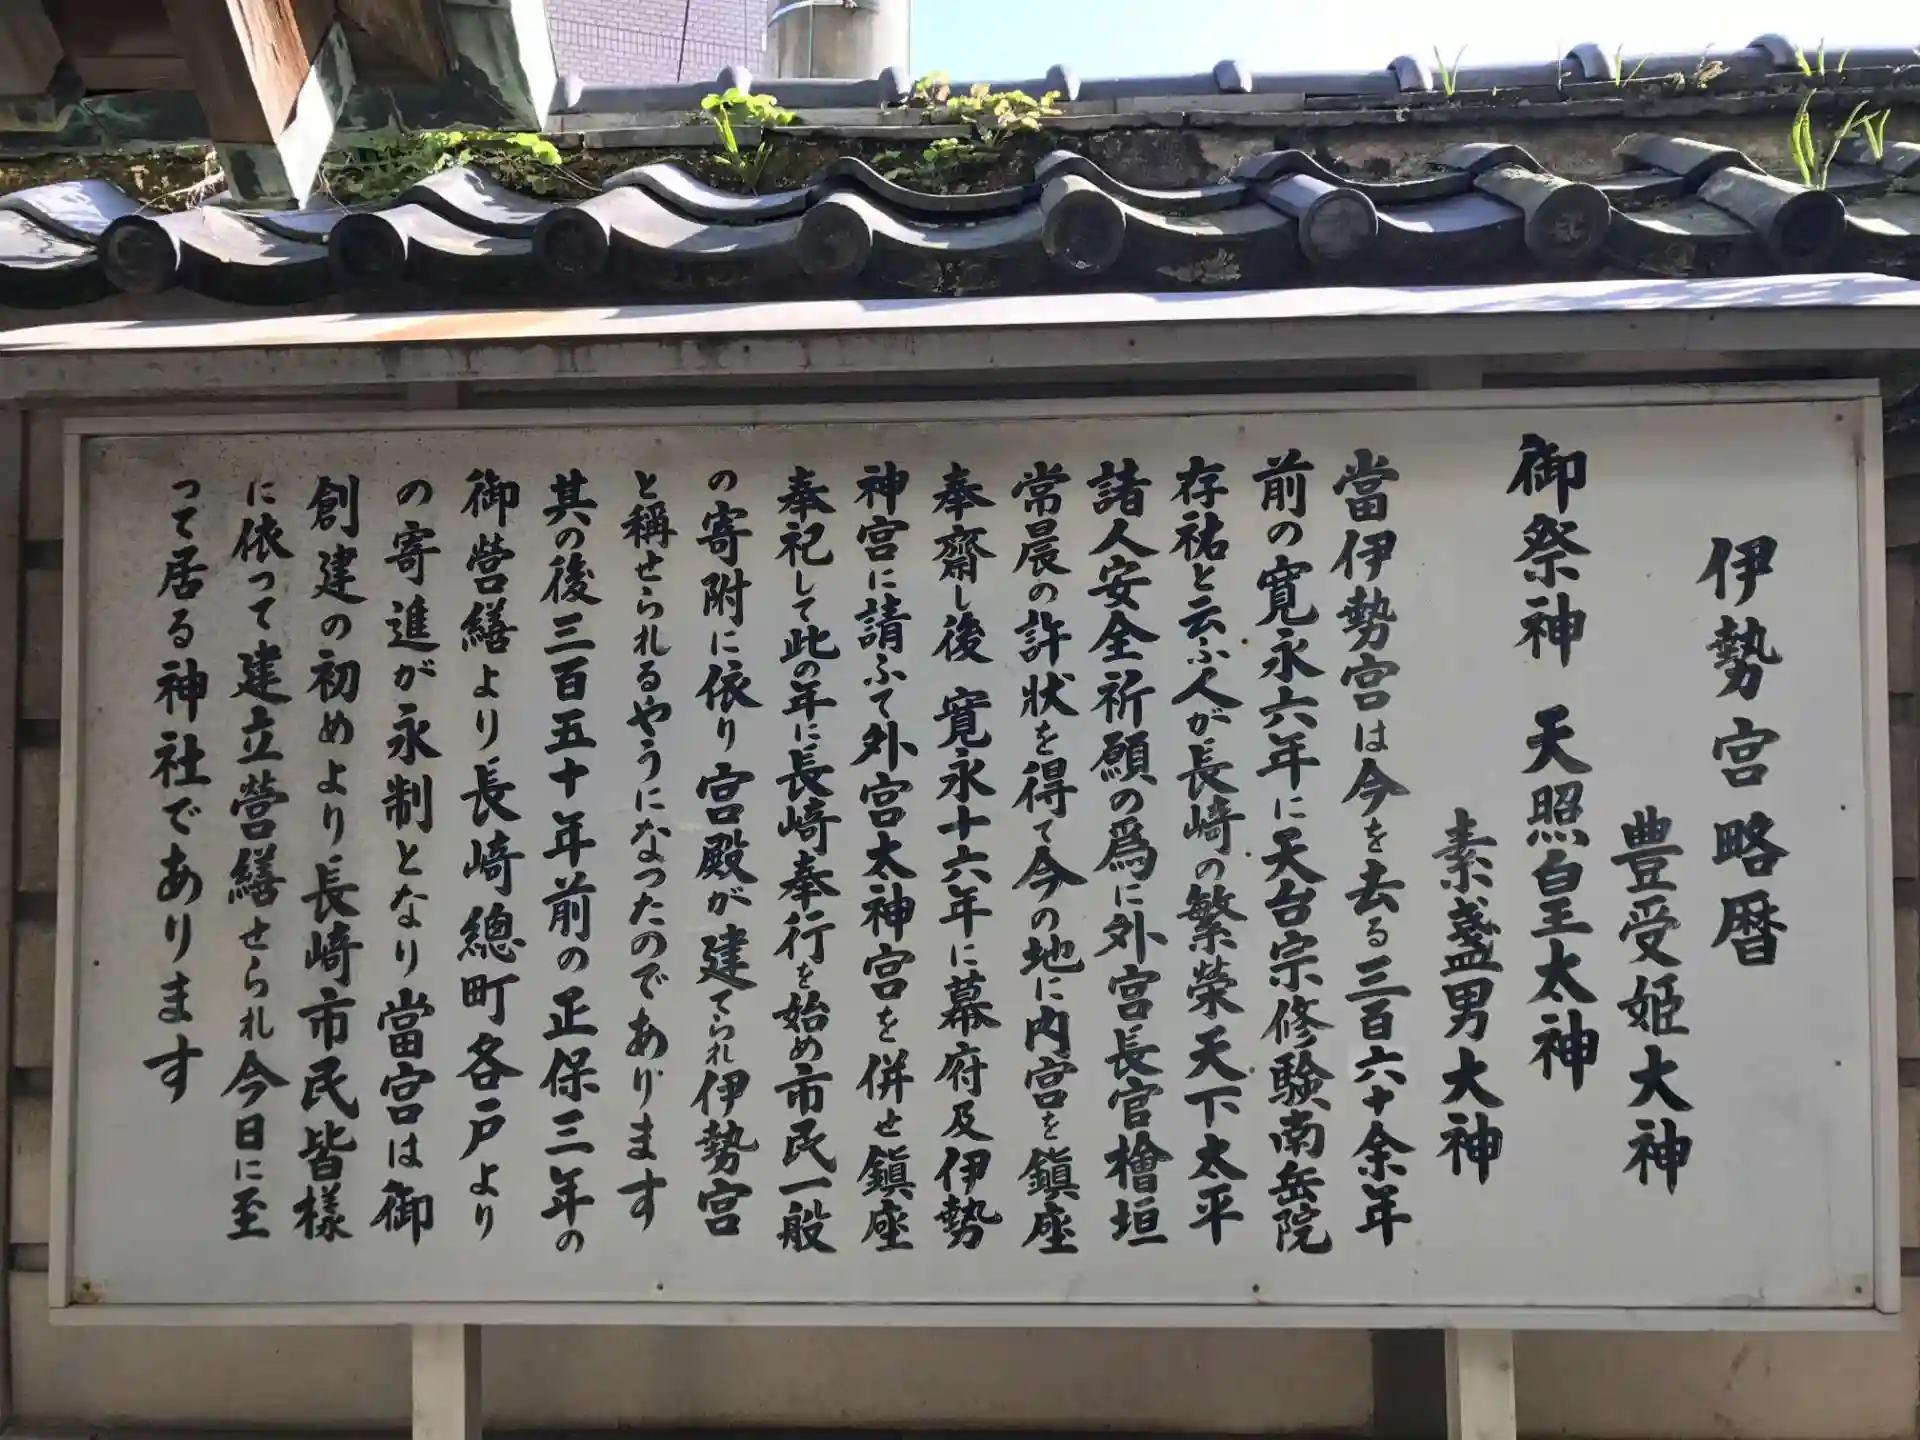 伊勢宮略暦
豊受姫大神
御祭神 天照皇太神
素盞男大神
當伊勢宮は今を去る三百六十余年
前の寛永六年に天台宗修験南岳院
存祐と云ふ人が長崎の繁栄天下太平
諸人安全祈願の爲に外宮長官檜垣
常晨の許状を得て今の地に内宮を鎭座
奉齋し後 寛永十六年に幕府及伊勢
神宮に請ふて外宮太神宮を併せ鎭座
奉祀して此の年に長崎奉行を始め市民一般
の寄附に依り宮殿が建てられ伊勢宮
と稱せられるやうになったのであります
其の後三百五十年前の正保三年の
御營繕より長崎總町各戸より
の寄進が永制となり當宮は御
創建の初めより長崎市民皆様
に依って建立營繕せられ今日に至
って居る神社であります